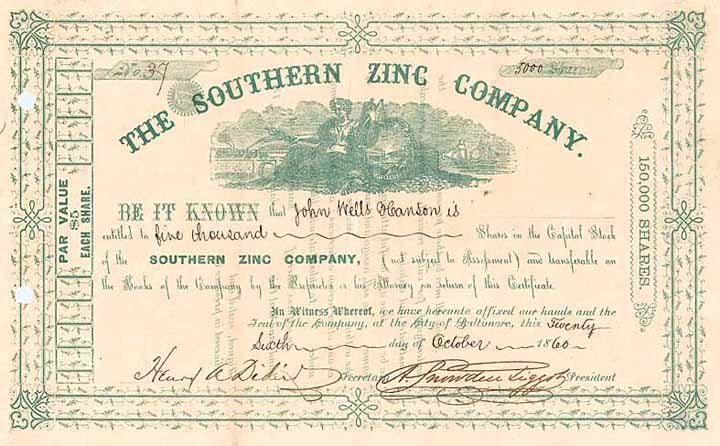 No. 37
5000 Shares
THE SOUTHERN ZINC COMPANY.
PAR VALUE $5 EACH SHARE.
150,000 SHARES.
BE IT KNOWN that John Wells Hanson is
entitled to five thousand Shares in the Capital Stock
of the SOUTHERN ZINC COMPANY, (not subject to Assessment) and transferable on
the Books of the Company by the Proprietor or his Attorney on return of this Certificate.
In Witness Whereof, we have hereunto affixed our hands and the
Seal of the Company, at the City of Baltimore, this Twenty
Sixth day of October 1860
Henry A Didier Secretary A. Snowden Piggot President